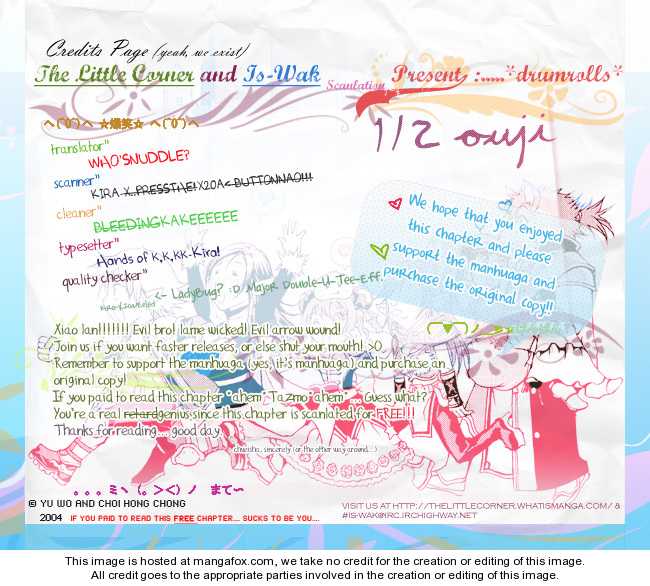 Credits Page (yeah, we exist)
The Little Corner and Is-Wak Scanlation Present, :.....*drumrolls*
1/2 ouji
へ(^0^)へ ☆爆笑☆ へ(^0^)へ
translator"
WHO'SNUDDLE?
scanner"
KIRA X..PRESSTHE!X20A<BUTTONNAO!!!
cleaner"
BLEEDINGKAKEEEEEE
typesetter"
Hands of K,K,KK-Kira!
quality checker"
<- LadyBug? :D Major Double-U-Tee-Eff.
We hope that you enjoyed
this chapter and please
support the manhuaga and
purchase the original copy!!
Xiao lan!!!!!!! Evil bro! lame wicked! Evil arrow wound!
Join us if you want faster releases, or else shut your mouth! >:O
Remember to support the manhuaga (yes, it's manhuaga) and purchase an
original copy!
If you paid to read this chapter *ahem* Tazmo *ahem* ... Guess what?
You're a real retardgenius since this chapter is scanlated for FREE!!!
Thanks for reading.... good day.
。。。ミヽ(。><)ノ まて~
© YU WO AND CHOI HONG CHONG
2004 IF YOU PAID TO READ THIS FREE CHAPTER... SUCKS TO BE YOU...
VISIT US AT HTTP://THELITTLECORNER.WHATISMANGA.COM/ &
#IS-WAK@IRC.IRCHIGHWAY.NET
This image is hosted at mangafox.com, we take no credit for the creation or editing of this image.
All credit goes to the appropriate parties involved in the creation or editing of this image.